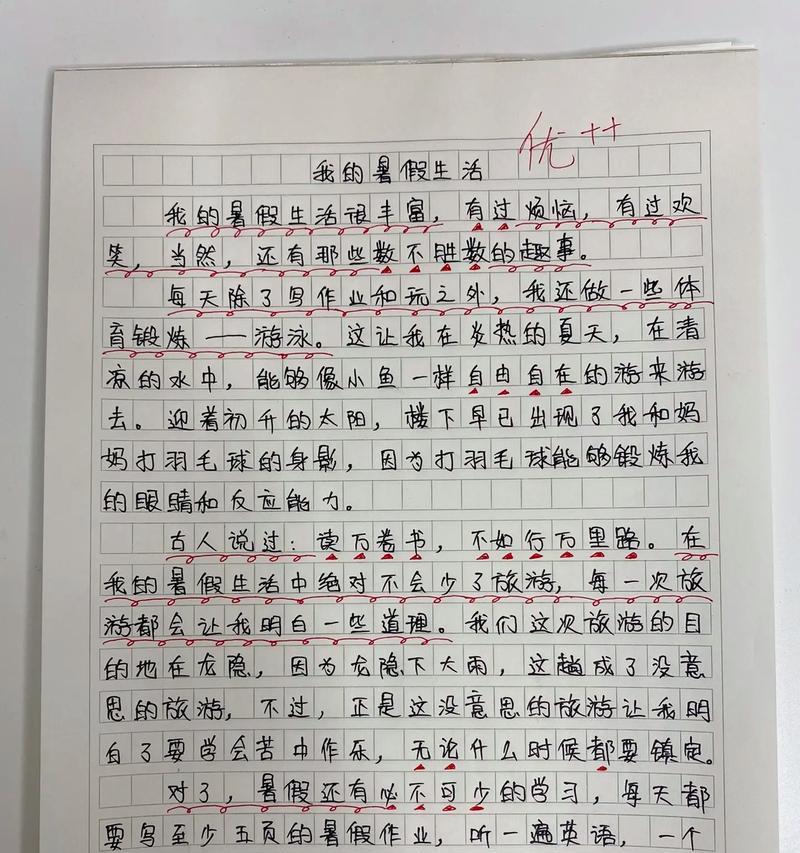 优++
我的暑假生活
我的暑假生活很丰富，有过烦恼，有过欢
笑，当然，还有那些数不胜数的趣事。
每天除了写作业和玩之外，我还做一些体
育锻炼——游泳。这让我在炎热的夏天，在清
凉的水中，能够像小鱼一样自由自在的游来游
去。迎着初升的太阳，楼下早已出现了我和妈
妈打羽毛球的身影，因为打羽毛球能够锻炼我
的眼睛和反应能力。
古人说过：读万卷书，不如行万里路。在
我的暑假生活中绝对不会少了旅游，每一次旅
游都会让我明白一些道理。我们这次旅游的目
的地在龙隐，因为龙隐下大雨，这趟成了没意
思的旅游，不过，正是这没意思的旅游让我明
白了要学会苦中作乐，无论什么时候都要镇定。
对了，暑假还有必不可少的学习，每天都
要写至少五页的暑假作业，听一遍英语，一个